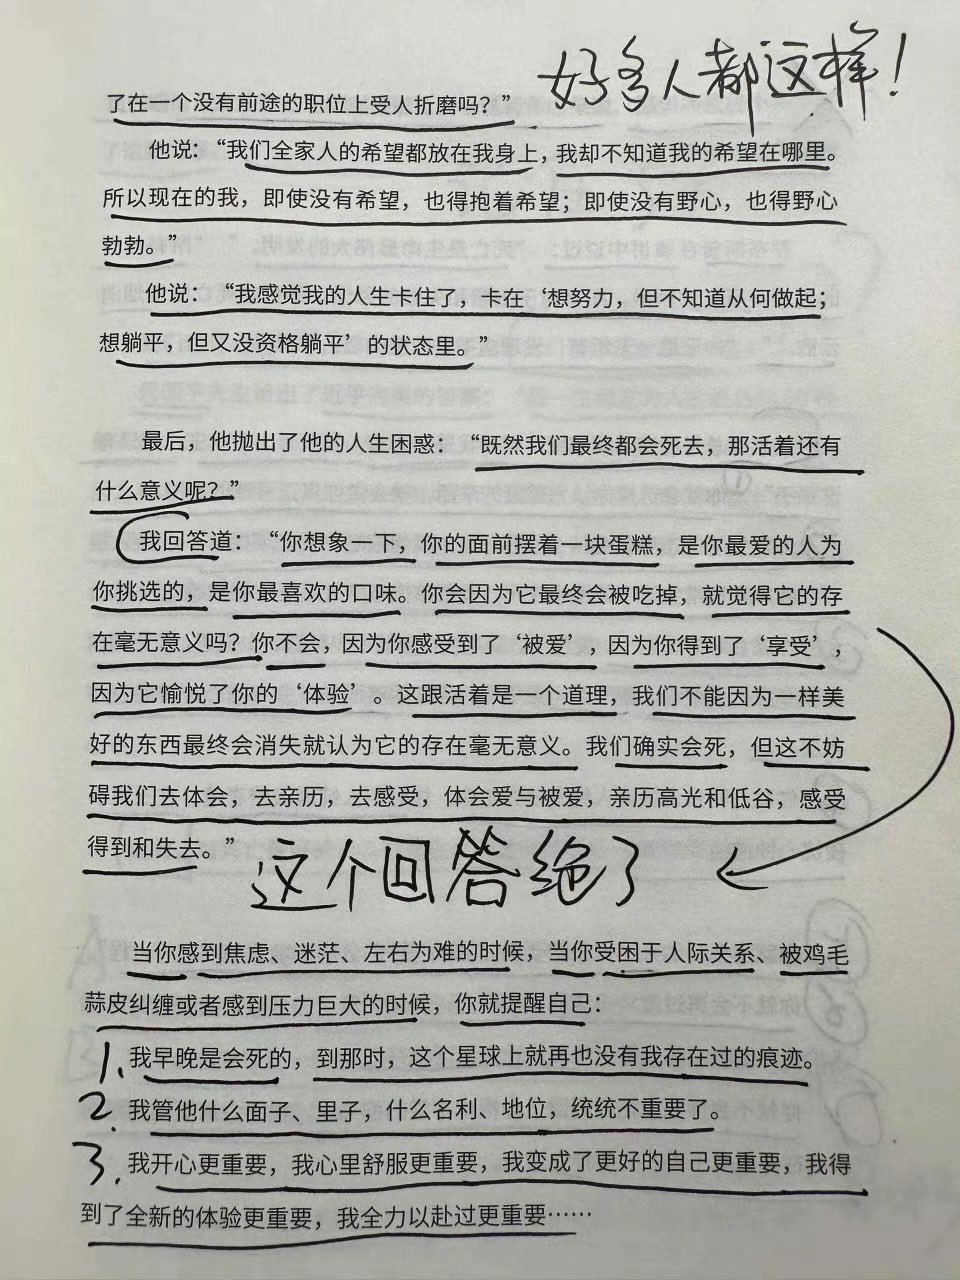 好多人都这样！
了在一个没有前途的职位上受人折磨吗？”
他说：“我们全家人的希望都放在我身上，我却不知道我的希望在哪里。
所以现在的我，即使没有希望，也得抱着希望；即使没有野心，也得野心
勃勃。”
他说：“我感觉我的人生卡住了，卡在‘想努力，但不知道从何做起；
想躺平，但又没资格躺平’的状态里。”
最后，他抛出了他的人生困惑：“既然我们最终都会死去，那活着还有
什么意义呢？”
我回答道：“你想象一下，你的面前摆着一块蛋糕，是你最爱的人为
你挑选的，是你最喜欢的口味。你会因为它最终会被吃掉，就觉得它的存
在毫无意义吗？你不会，因为你感受到了‘被爱’，因为你得到了‘享受’，
因为它愉悦了你的‘体验’。这跟活着是一个道理，我们不能因为一样美
好的东西最终会消失就认为它的存在毫无意义。我们确实会死，但这不妨
碍我们去体会，去亲历，去感受，体会爱与被爱，亲历高光和低谷，感受
得到和失去。”
这个回答绝了
当你感到焦虑、迷茫、左右为难的时候，当你受困于人际关系、被鸡毛
蒜皮纠缠或者感到压力巨大的时候，你就提醒自己：
1、我早晚是会死的，到那时，这个星球上就再也没有我存在过的痕迹。
2.我管他什么面子、里子，什么名利、地位，统统不重要了。
3.我开心更重要，我心里舒服更重要，我变成了更好的自己更重要，我得
到了全新的体验更重要，我全力以赴过更重要……